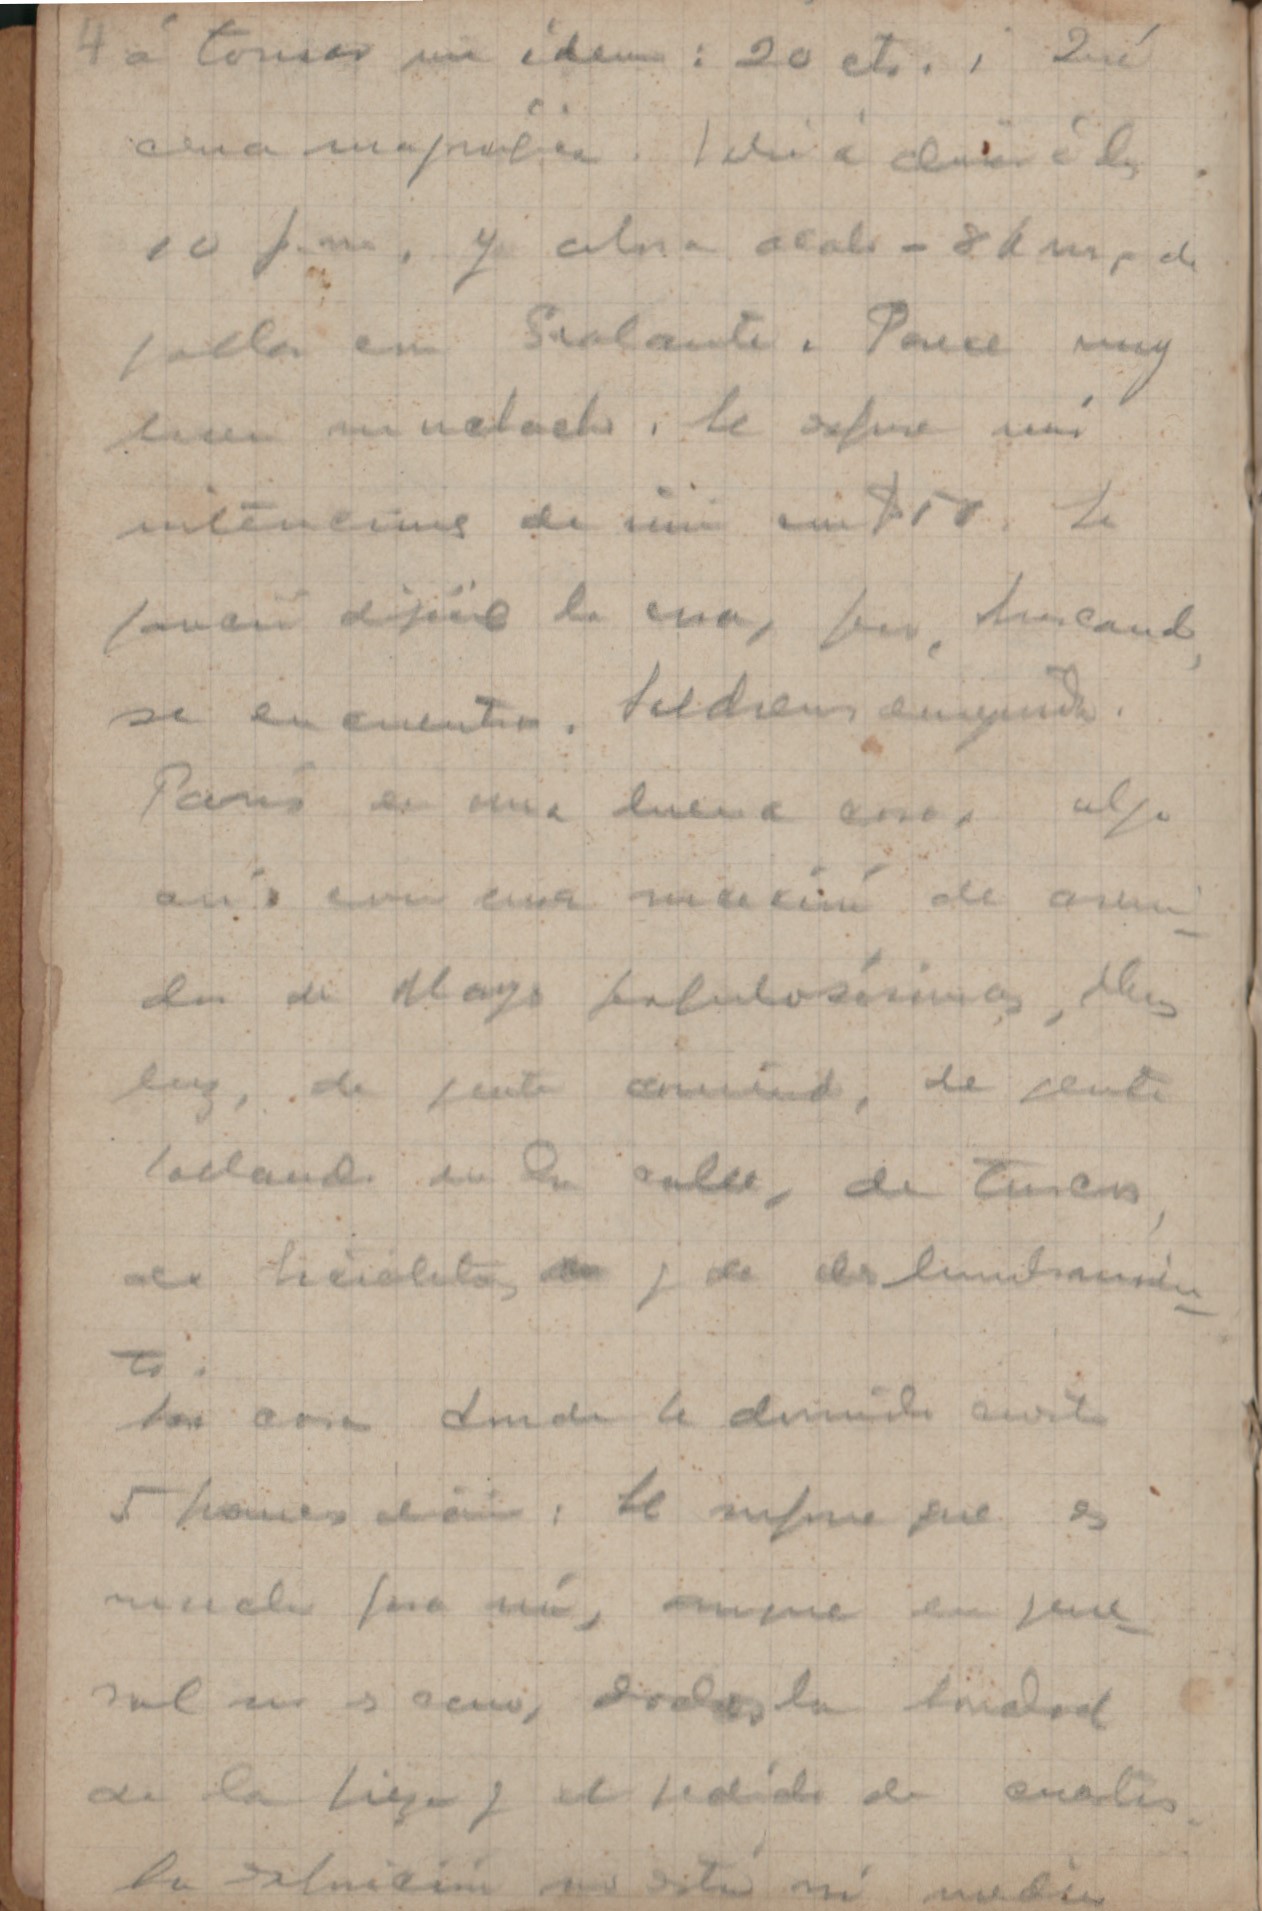 4 á tomar un idem: 20 cts. ¡Qué
cena magnífica. Volví á dormir á las
10 p.m. y ahora acabo - 8 h m, de
hallar con Sralante. Parece muy
buen muchacho. Le expuse mis
intenciones de vivir con $ 50. Le
pareció difícil la cosa, pero, buscando,
se encuentra. Saldremos enseguida.
París es una buena cosa, algo
así como una sucesión de aveni-
das de Mayo populosísimas, Mas
luz, de gente comiendo, de gente
bailando en la calle, de turcos,
de bicicletas y de deslumbramien-
to.
La casa donde he dormido cuesta
5 francos diarios: Se supone que es
mucho para mí, aunque en gene-
ral no es caro, dadas la bondad
de la pieza y el pedido de cuartos.
La Exposición no está ni medio